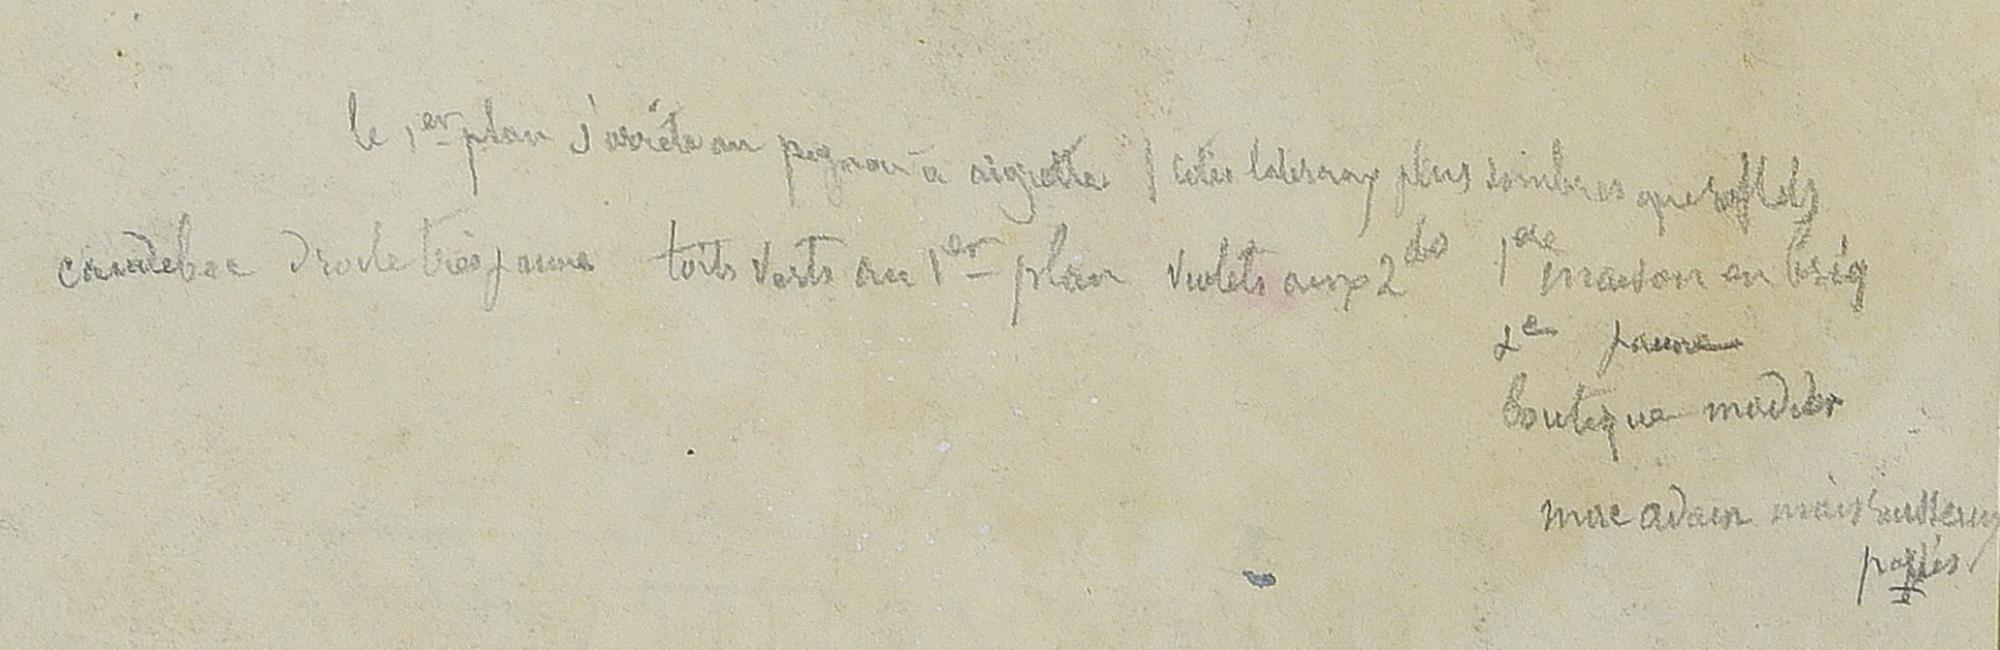 le 1er plan s'arrête au pignon à aigrette / côtés lateraux plus sombres que reflets
caudebec droite très jaune toits verts au 1er plan violets aux 2ds 1ere maison en briq
2e jaune
boutique
mac adam mais